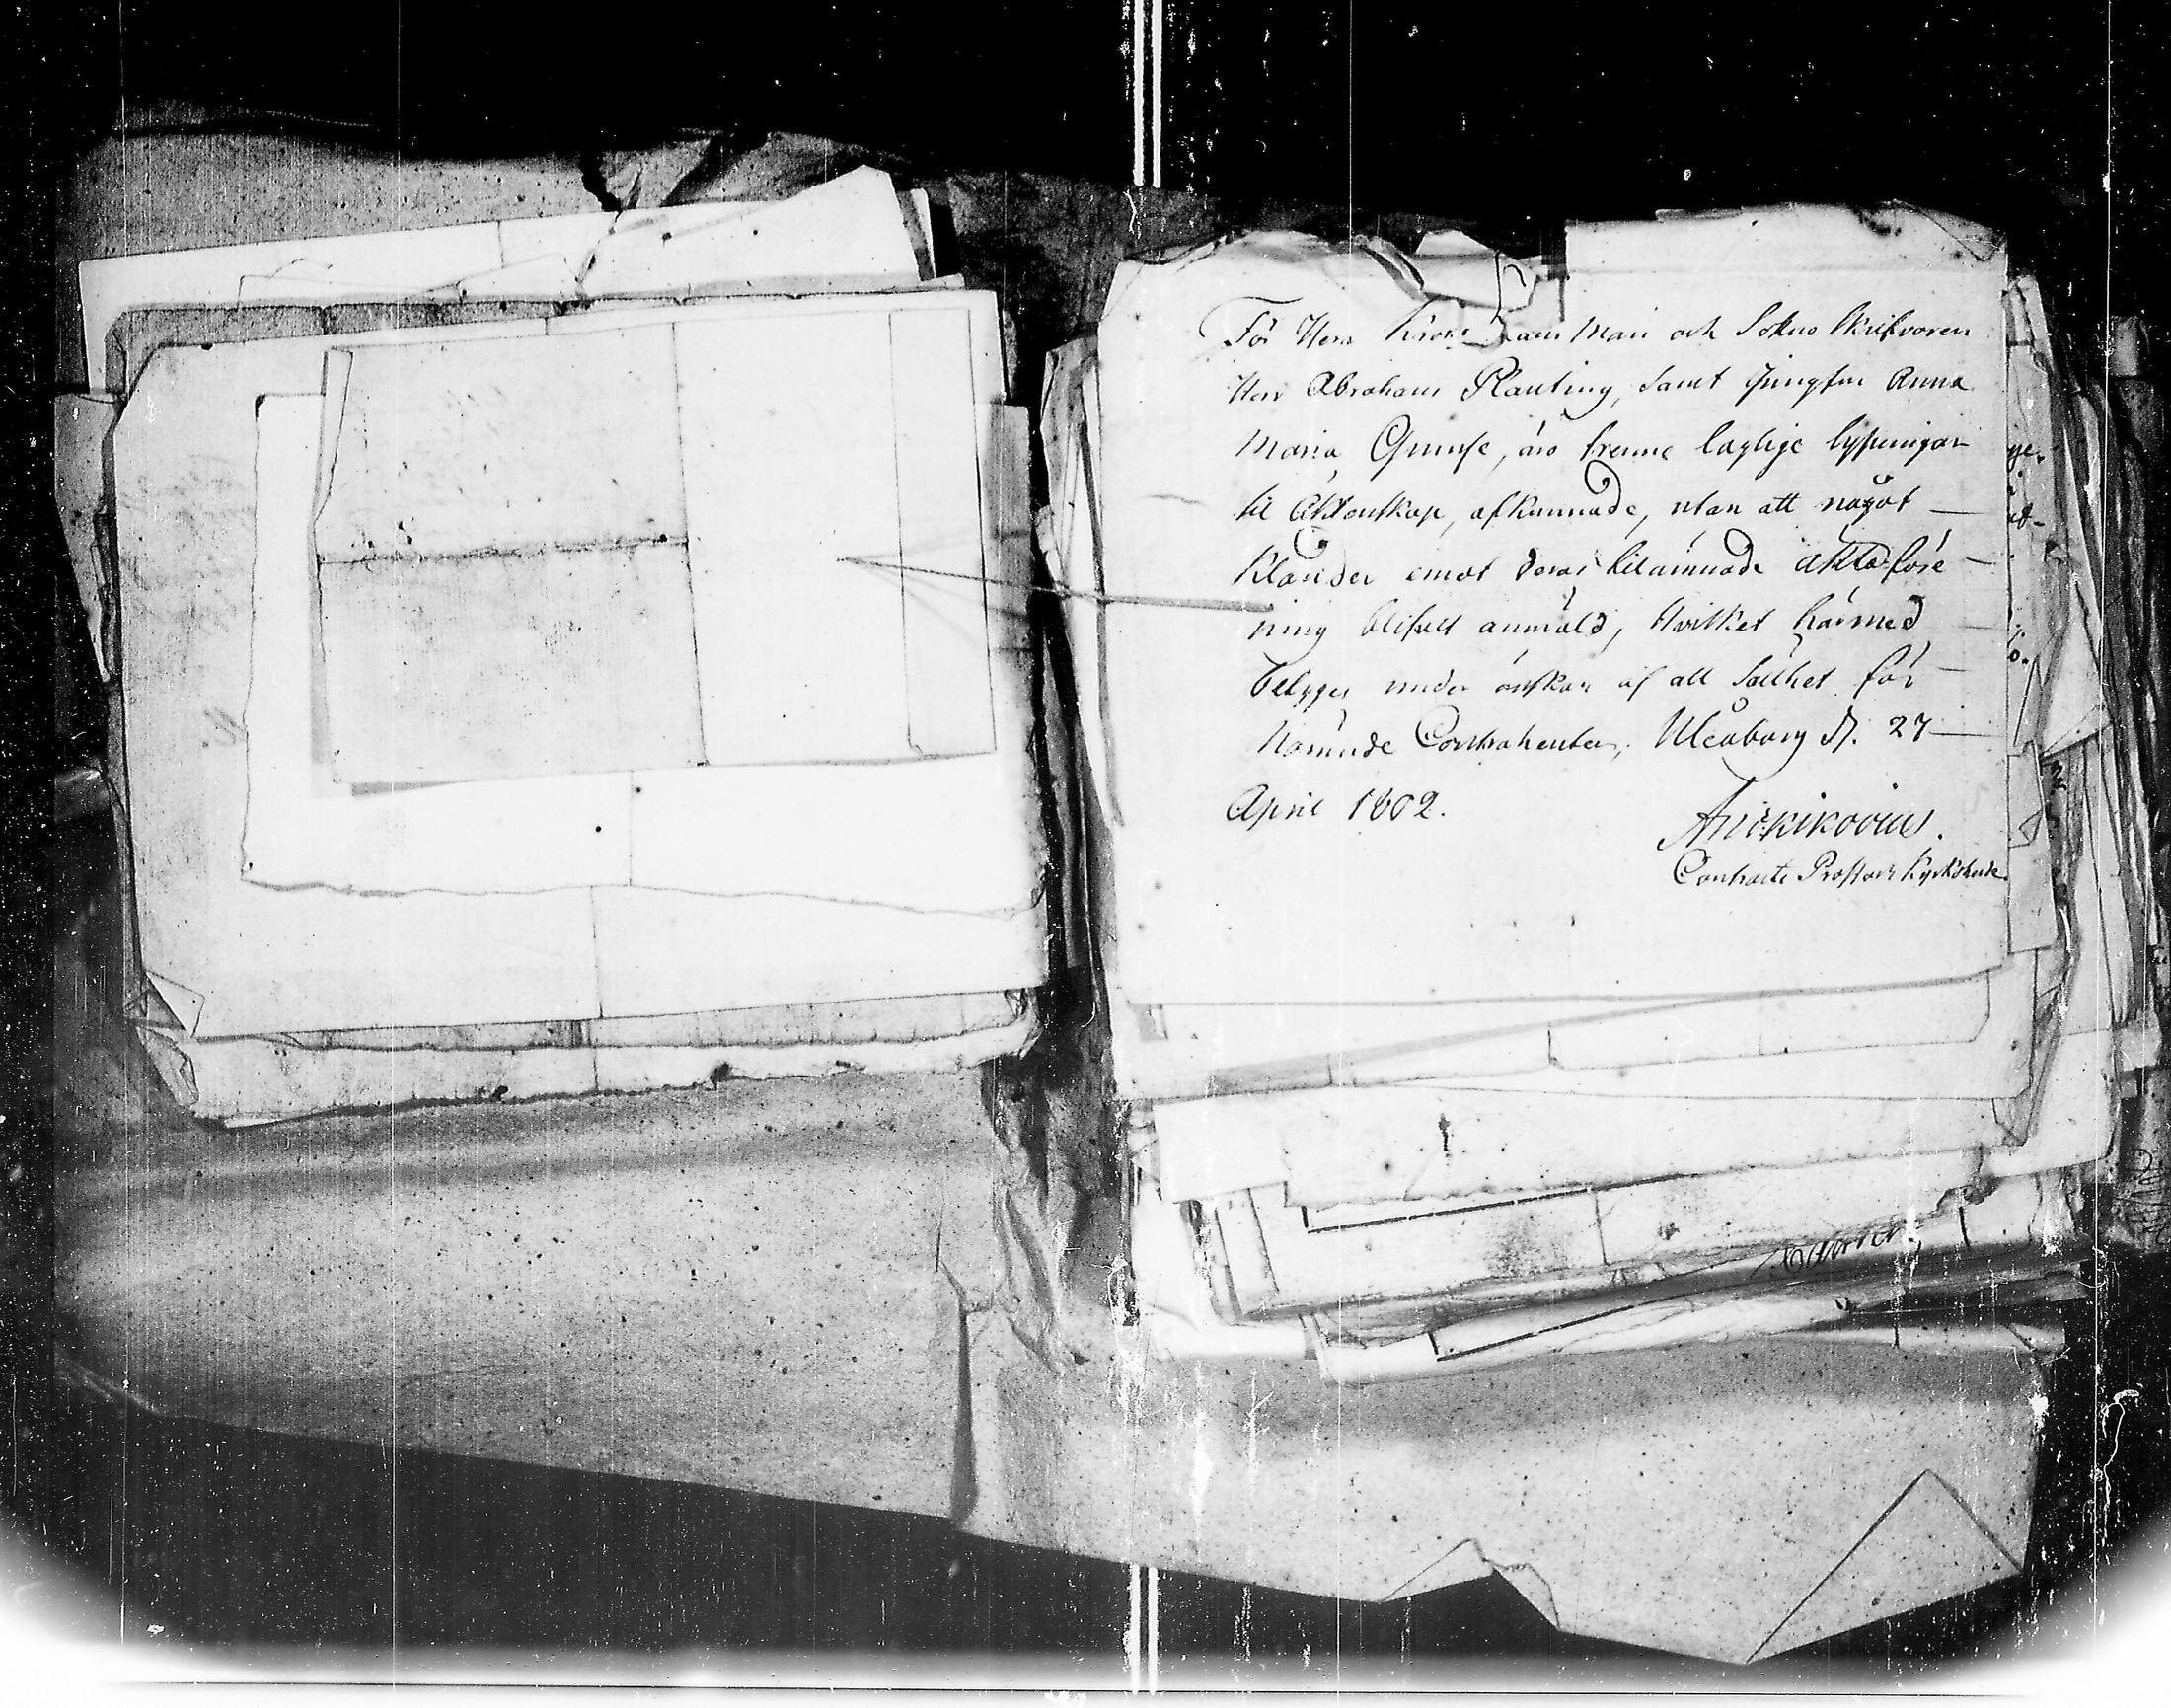 För Herr Krono Läns Man och Sokne Skrifvaren
Herr Abraham Planting, samt Jungfru Anna
Maria Grunse, äro trenne laglige lysningar
til Äktenskap, afkunnade, utan att något
klander emot deras tilämnade äkta före
ning blifvit anmäld, hvilket härmed
betyges under önskan af all sällhet för
Nämnde Contrahenter, Uleåborg d. 27
April 1802.
Contracts Prost och Kyrkoherde